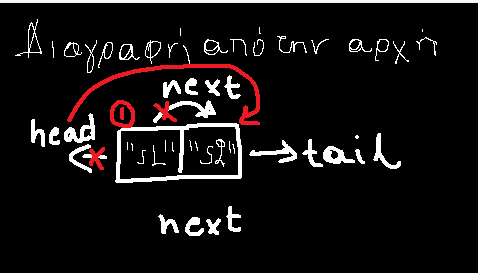 Διαγραφή από την αρχή
next
①
head
"s1" "s2"
tail
next